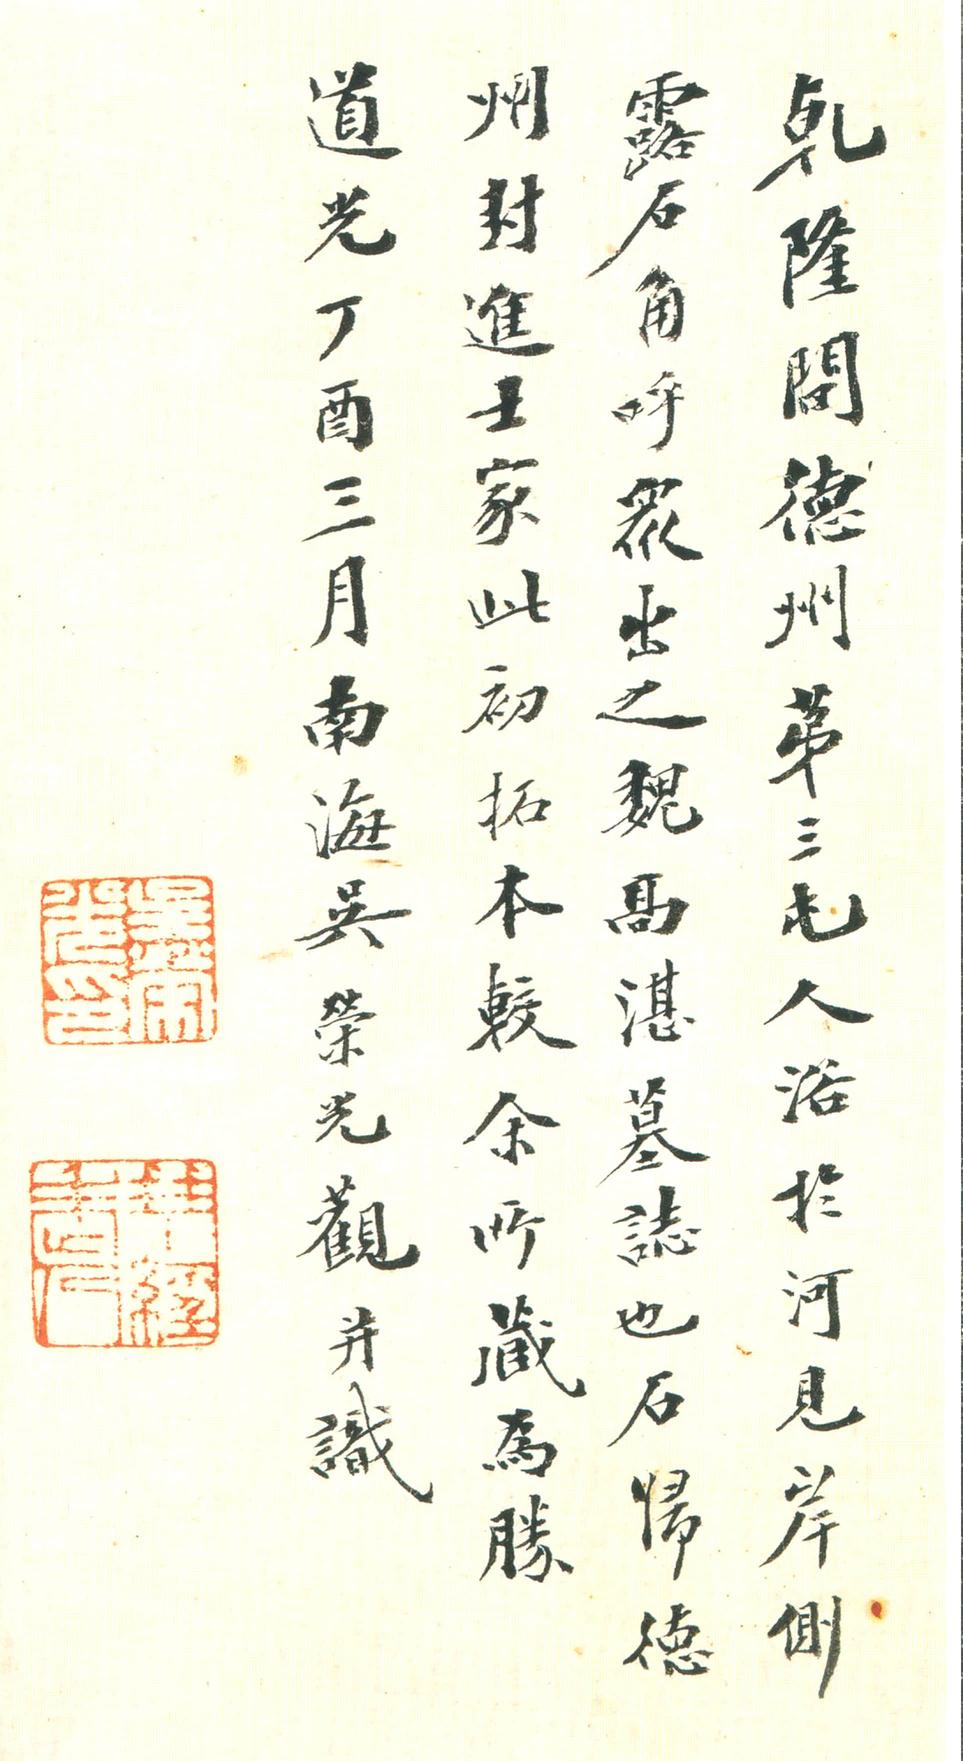 乾隆間德州第三屯人浴於河見岸側
露石角呼衆出之魏高湛墓誌也石歸德
州封進士家此初拓本較余所藏為勝
道光丁酉三月南海吳榮光觀并識
吳榮光印